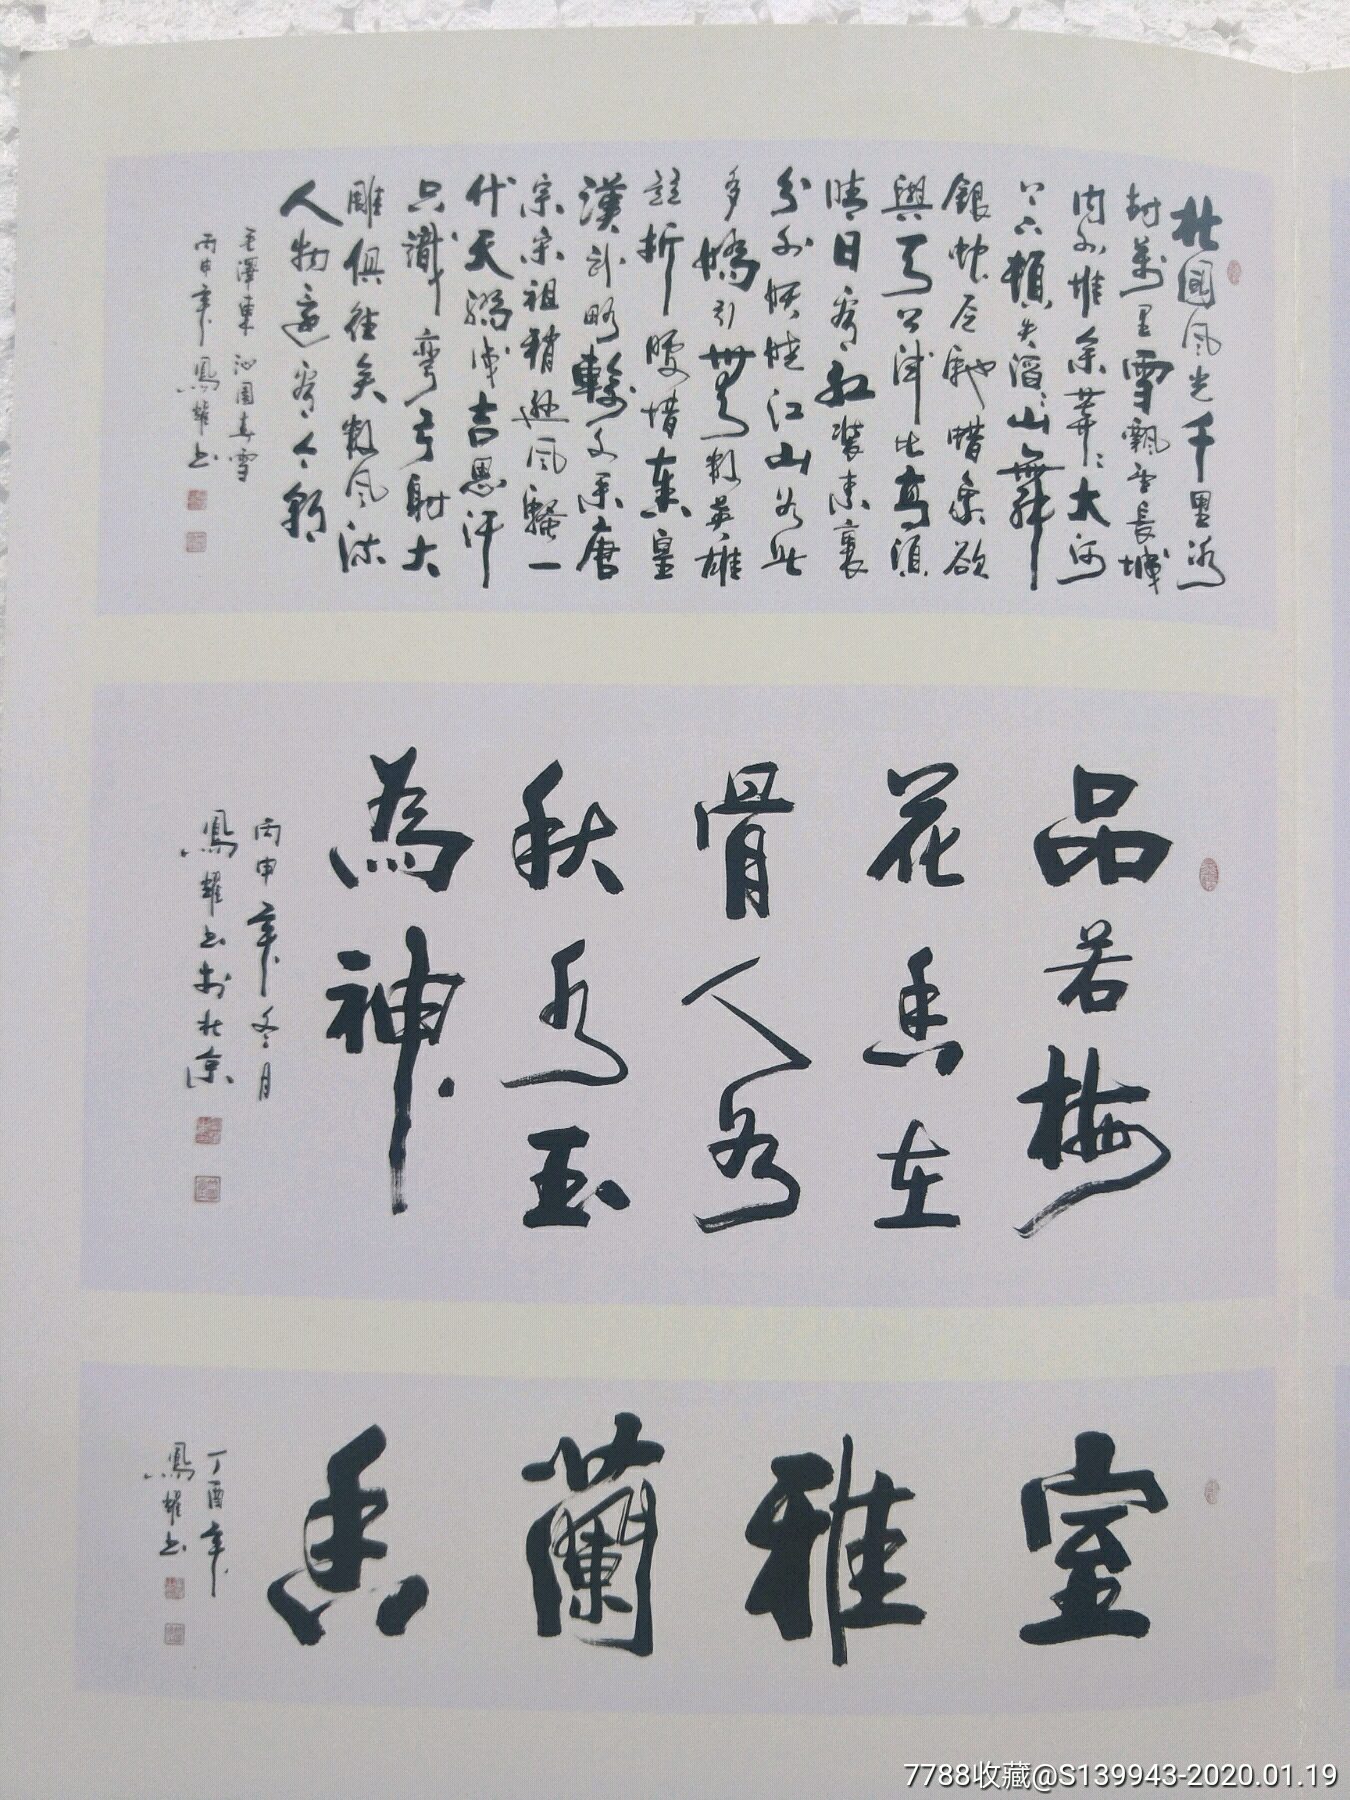 北國風光千里冰
封萬里雪飄望長城
内外惟余莽々大河
上下頓失滔々山舞
銀蛇原馳蜡象欲
與天公試比高須
晴日看紅裝素裹
分外妖嬈江山如此
多嬌引無數英雄
競折腰惜秦皇
漢武略輸文采唐
宗宋祖稍遜風騷一
代天驕成吉思汗
只識彎弓射大
雕俱往矣數風流
人物還看今朝
毛澤東 沁園春雪
丙申年 鳳耀書
品若梅
花香在
骨人如
秋水玉
為神
丙申年冬月
鳳耀書於北京
室雅蘭香
丁酉年
鳳耀書
7788收藏@S139943-2020.01.19